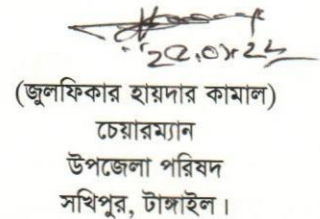 (জুলফিকার হায়দার কামাল)
চেয়ারম্যান
উপজেলা পরিষদ
সখিপুর, টাঙ্গাইল।